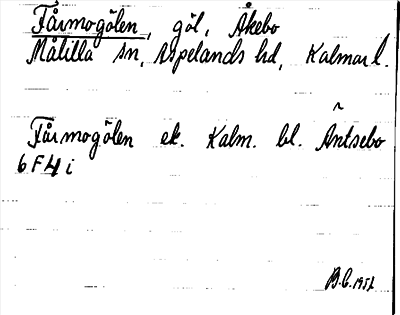 Fårmogölen, göl, Åkebo
Målilla sn, Aspelands hd, Kalmar l.
Fårmogölen ek. Kalm. bl. Äntsebo
6 F 4 i
B.C. 1951